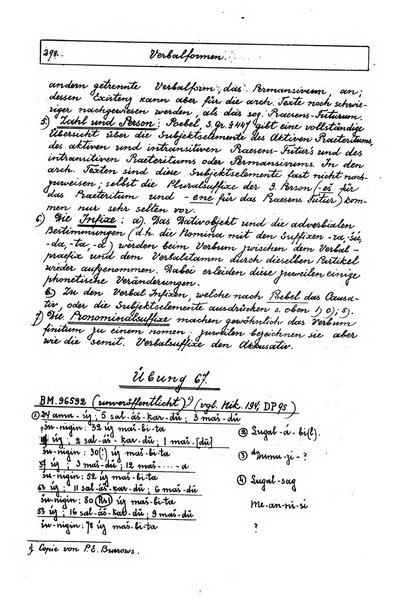 298. Verbalformen.
andern getrennte Verbalform, das Permansivum, an;
dessen Existenz kann aber für die arch. Texte noch schwie-
riger nachgewiesen werden, als das sog. Praesens-Futurum.
5) Zahl und Person: Poebel, S. Gr. § 447 gibt eine vollständige
Übersicht über die Subjektselemente des Aktiven Praeteritums,
des aktiven und intransitiven Praesens-Futurs und des
intransitiven Praeteritums oder Permansivums. In den
arch. Texten sind diese Subjektselemente fast nicht noch-
zuweisen; selbst die Pluralsuffixe der 3. Person (-eš für
das Praeteritum und -ene für das Praesens Futur) kom-
men nur sehr selten vor.
6) Die Infixe: a) Das Dativobjekt und die adverbialen
Bestimmungen (d.h. die Nomina mit den Suffixen -ra, -šú
-da, -ta, -a) werden beim Verbum zwischen dem Verbal-
praefix und dem Verbalstamm durch dieselben Partikel
wieder aufgenommen. Dabei erleiden diese zuweilen einige
phonetische Veränderungen.
b) Zu den Verbal Infixen, welche nach Poebel das Causa-
tiv, oder die Subjektselemente ausdrücken s. oben 1) 0); 5).
7) Die Pronominalsuffixe machen gewöhnlich das Verbum
finitum zu einem nomen, zuweilen bezeichnen sie aber
wie die semit. Verbalsuffixe den Akkusativ.
Übung 67.
BM. 96592 (unveröffentlicht)¹) (vgl. Nik. 194; DP 95)
① 24 ama-új; 5 sal-áš-kar-dū; 3 maš-dū
šu-nigin: 32 új maš-bi-ta
② Sugal-á-bi(l).
új; 2 sal-áš-kar-dū; 1 maš-[dū]
šu-nigin: 30(!) új maš-bi-ta
③ Amu-ji-?
37 új; 3 maš-dū; 12 maš-----a
šu-nigin: 52 új maš-bi-ta
④ Sugal-sag
63 új; 11 sal-áš-kar-dū; 6 maš-dū
šu-nigin: 80 új maš-bi-ta
Me-an-ni-si
53 új; 16 sal-áš-kar-dū; 9 maš-dū
šu-nigin: 78 új maš-bi-ta
?
1) Copie von P. E. Burrows.